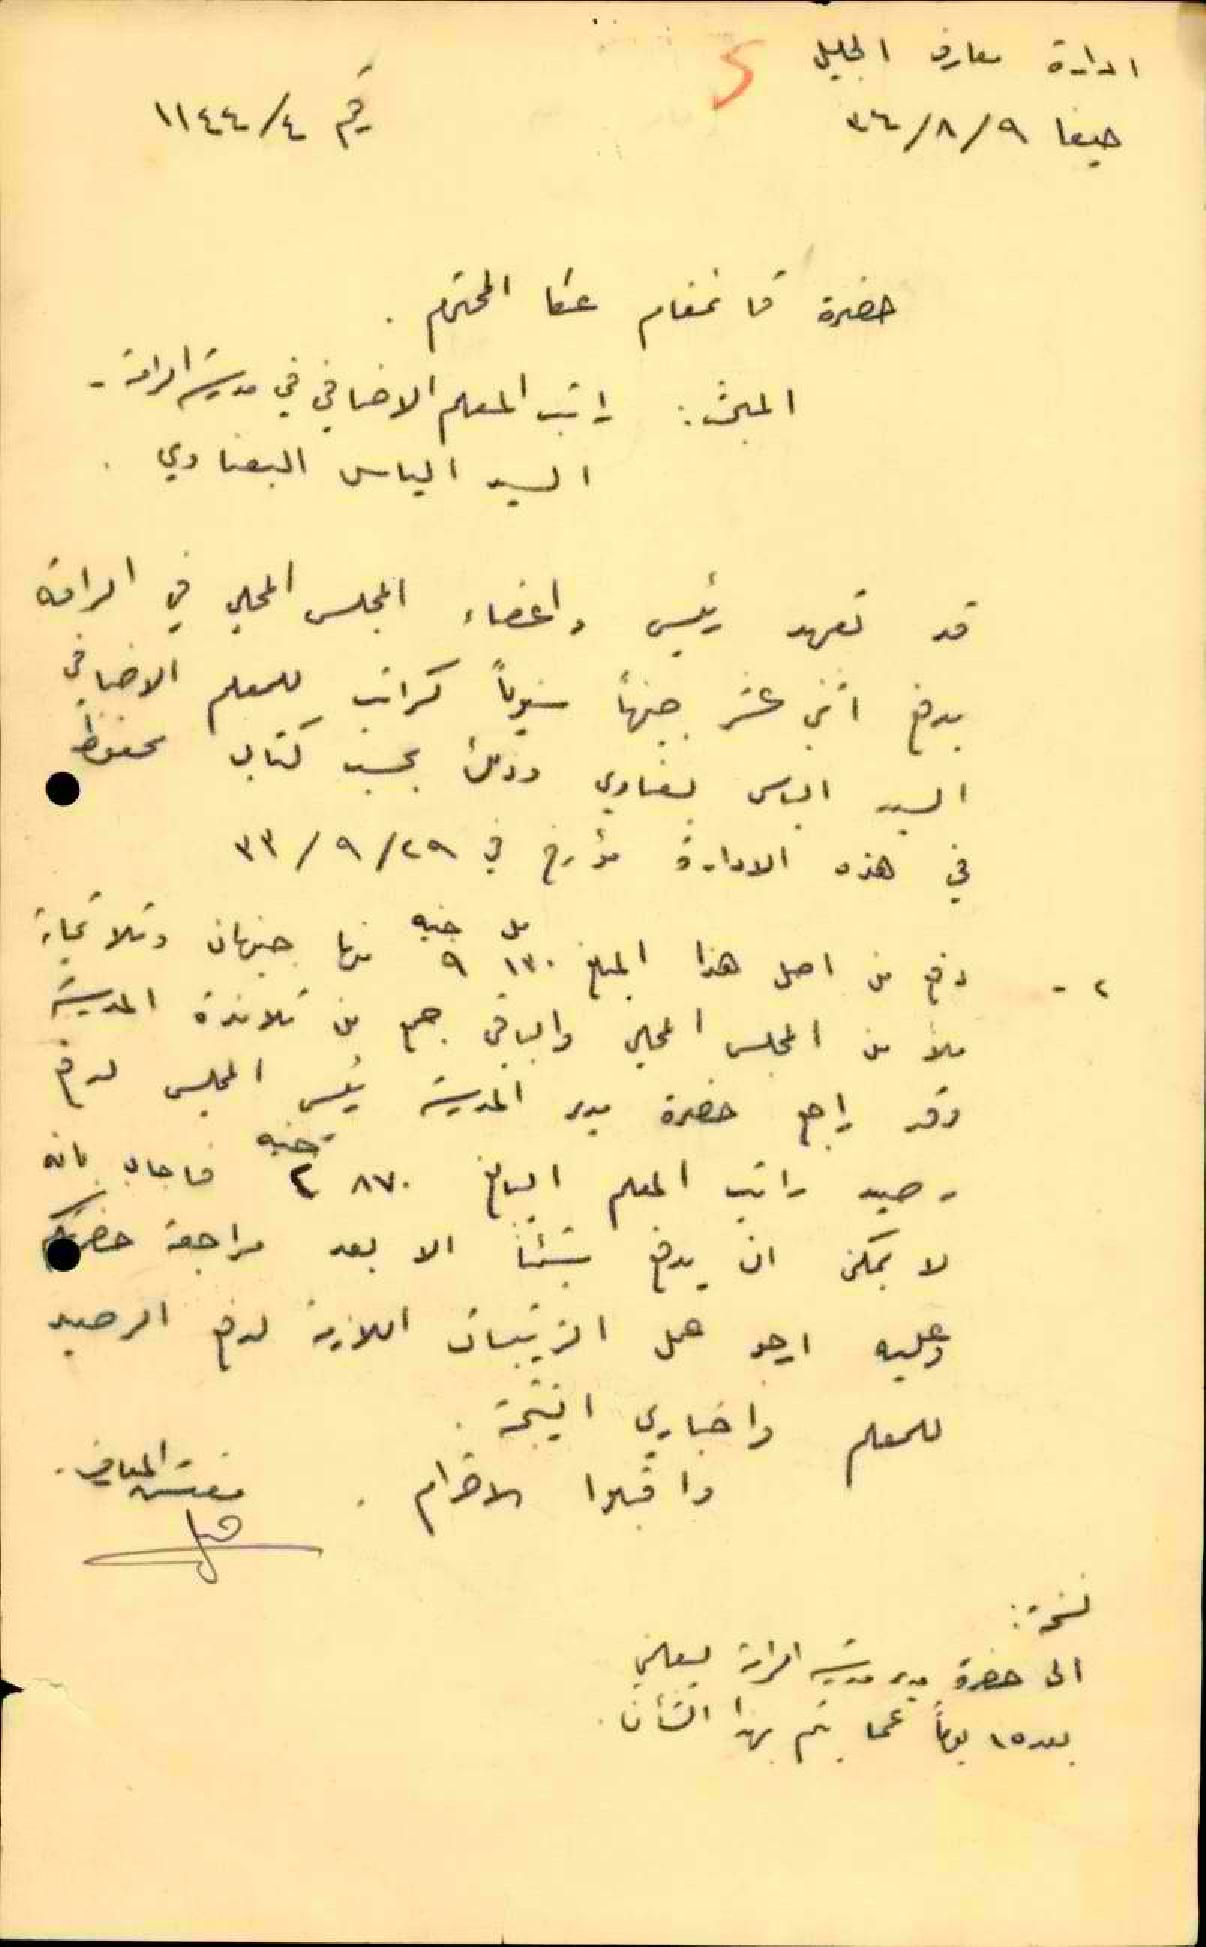 ادارة معارف الجليل
حيفا ٩/٨/٣٤
رقم ١١٤٤/٤
حضرة قائمقام عكا المحترم .
المبحث : راتب المعلم الاضافي في مدرسة الرامة -
السيد الياس البقناوي .
قد تعهد رئيس واعضاء المجلس المحلي في الرامة
بدفع اثني عشر جنيهاً سنوياً كراتب للمعلم الاضافي
السيد الياس بقناوي وذلك بحسب كتاب محفوظ
في هذه الادارة مؤرخ في ٢٩/٩/٣٣
٢ - دفع من اصل هذا المبلغ ١٣٠ مل ٩ جنيه منها جنيهان وثلاثماية
ملاً من المجلس المحلي والباقي جمع من تلامذة المدرسة
وقد راجع حضرة مدير المدرسة رئيس المجلس لدفع
رصيد راتب المعلم البالغ ٨٧٠ ٢ جنيه فاجاب بانه
لا يمكن ان يدفع شيئاً الا بعد مراجعة حضرتكم
وعليه ارجو عمل الترتيبات اللازمة لدفع الرصيد
للمعلم واخباري النتيجة .
واقبلوا الاحترام .
مفتش المعارف .
نسخة :
الى حضرة مدير مدرسة الرامة ليعلمني
بعد ١٥ يوماً عما يتم بهذا الشأن .